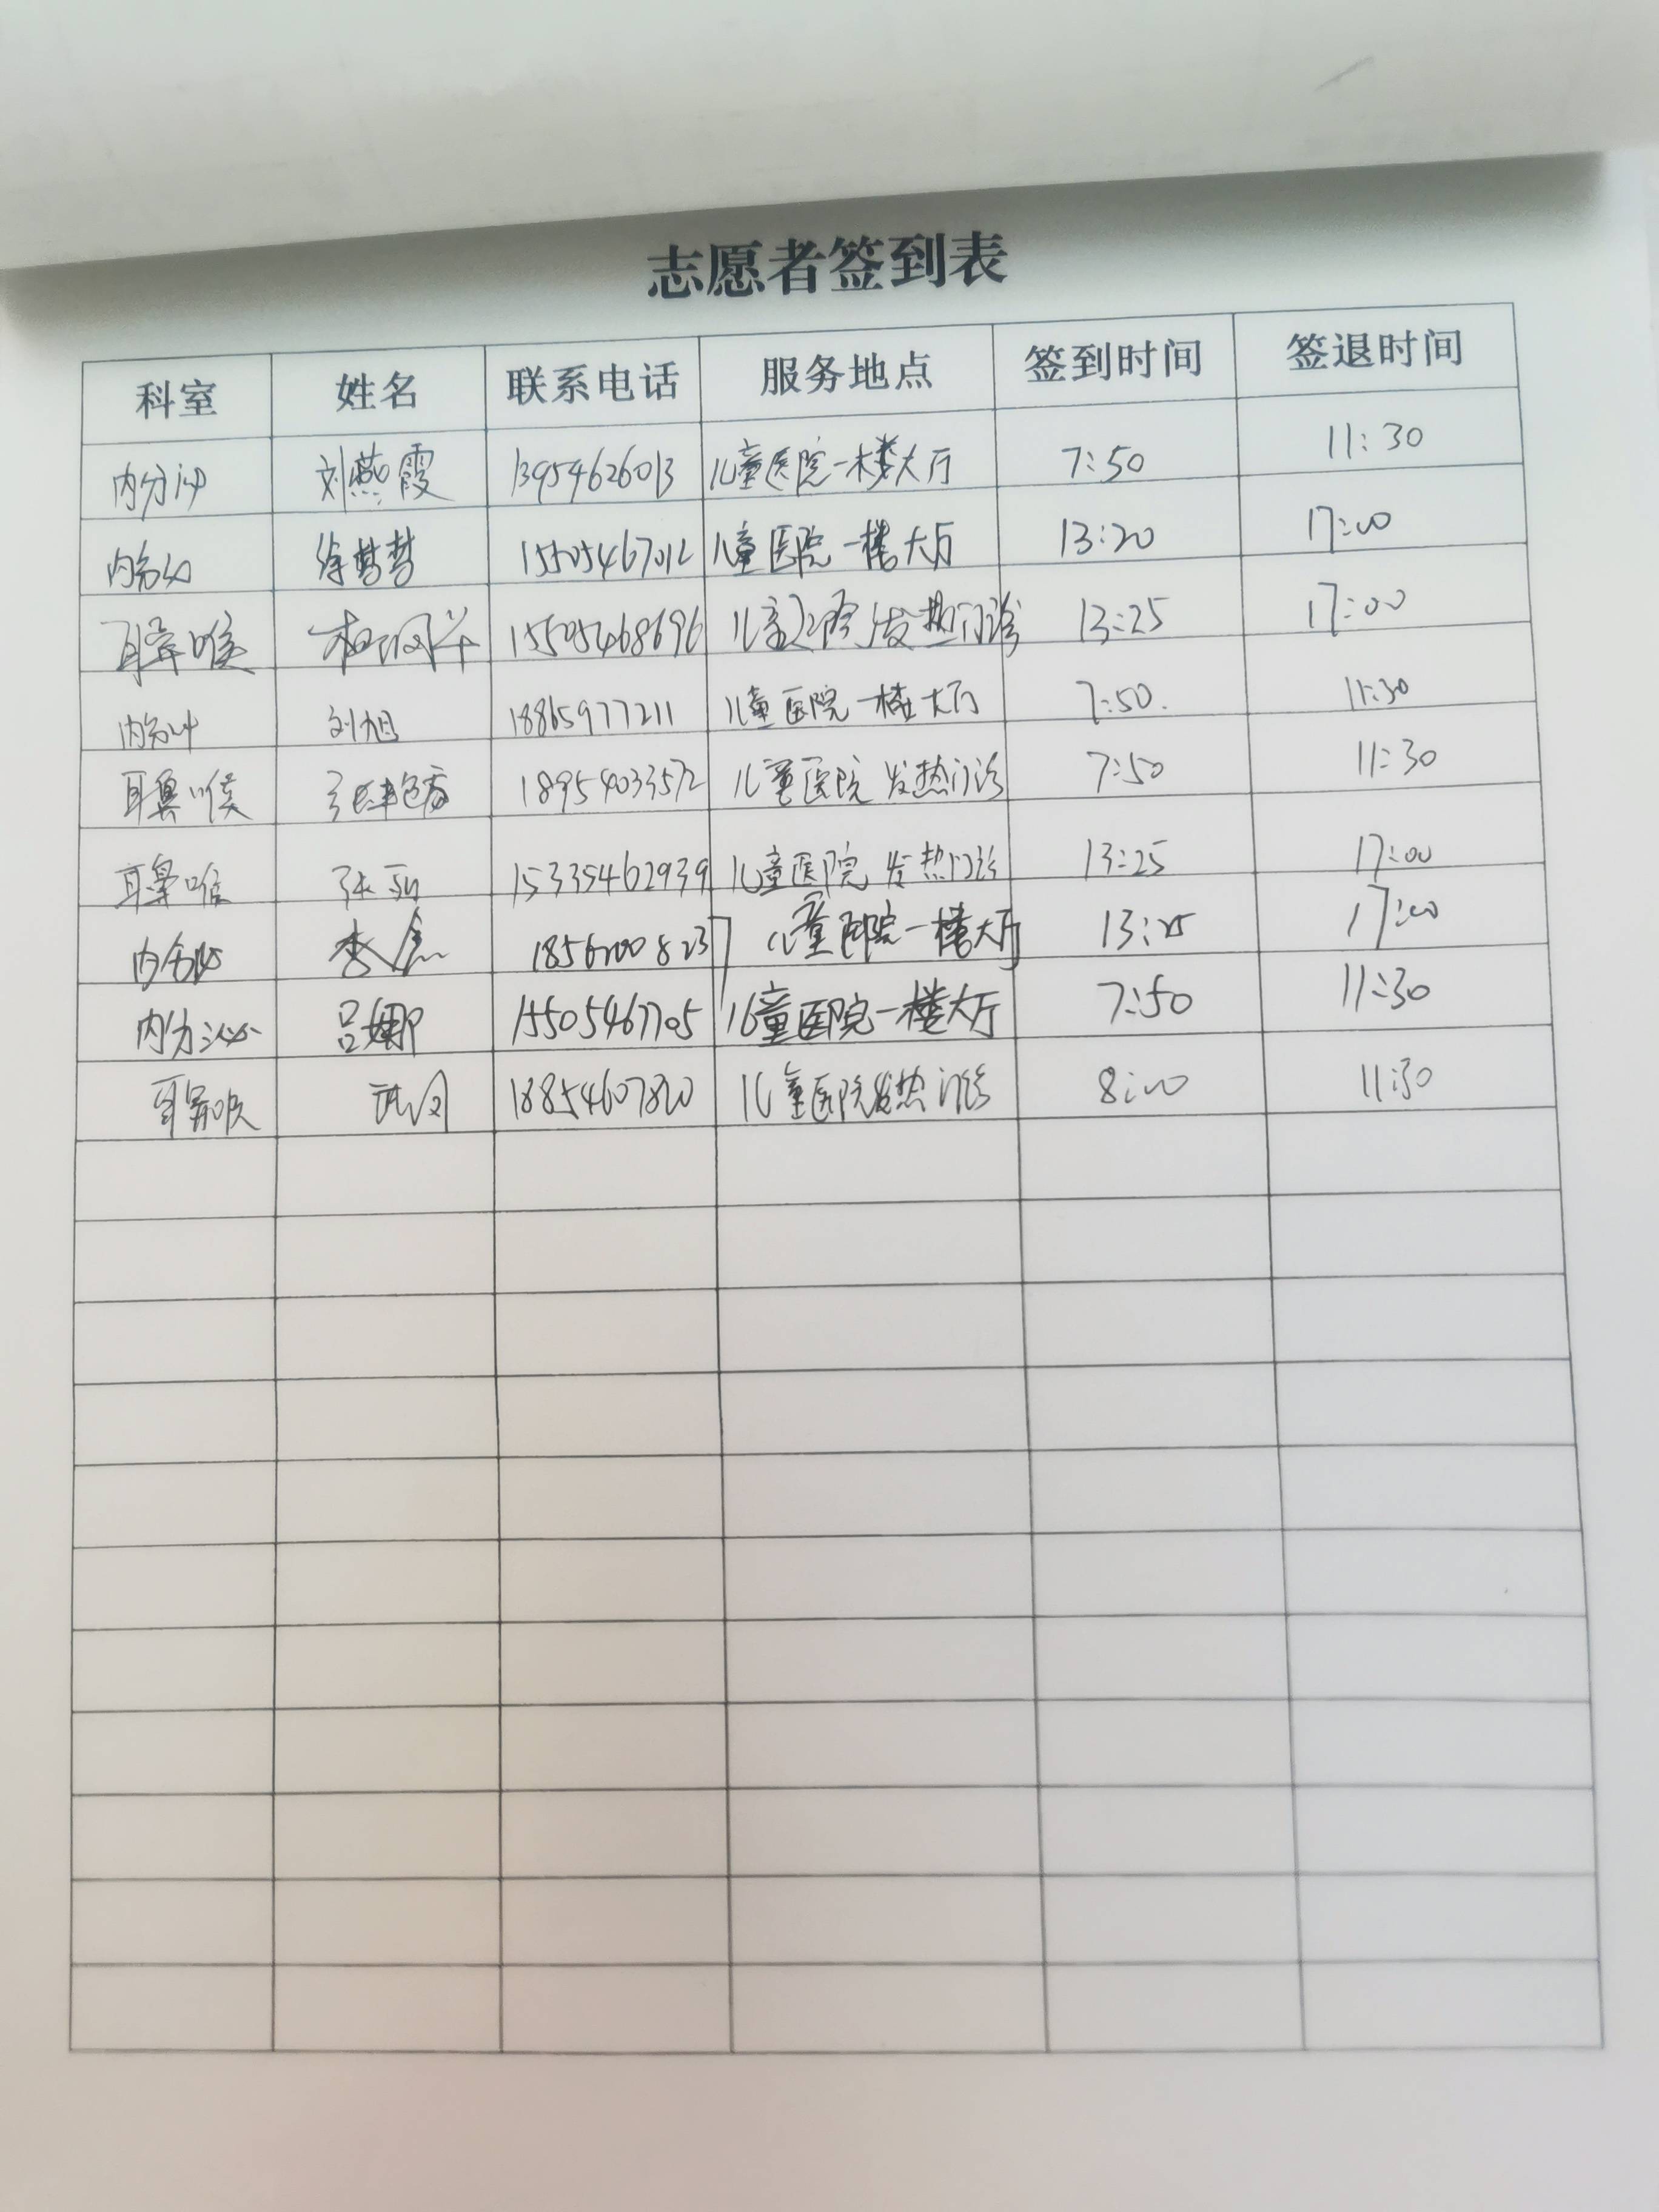 志愿者签到表
科室 姓名 联系电话 服务地点 签到时间 签退时间
内分泌 刘燕霞 13954626013 儿童医院一楼大厅 7:50 11:30
内分泌 徐梦梦 15505467012 儿童医院一楼大厅 13:20 17:00
耳鼻喉 15505468696 儿童医院发热门诊 13:25 17:00
内分泌 刘旭 18865977211 儿童医院一楼大厅 7:50. 11:30
耳鼻喉 18954033572 儿童医院 发热门诊 7:50 11:30
耳鼻喉 15335462939 儿童医院 发热门诊 13:25 17:00
内分泌 儿童医院一楼大厅 13:25 17:00
内分泌 吕娜 15505467705 儿童医院一楼大厅 7:50 11:30
耳鼻喉 18854607820 儿童医院发热门诊 8:00 11:30